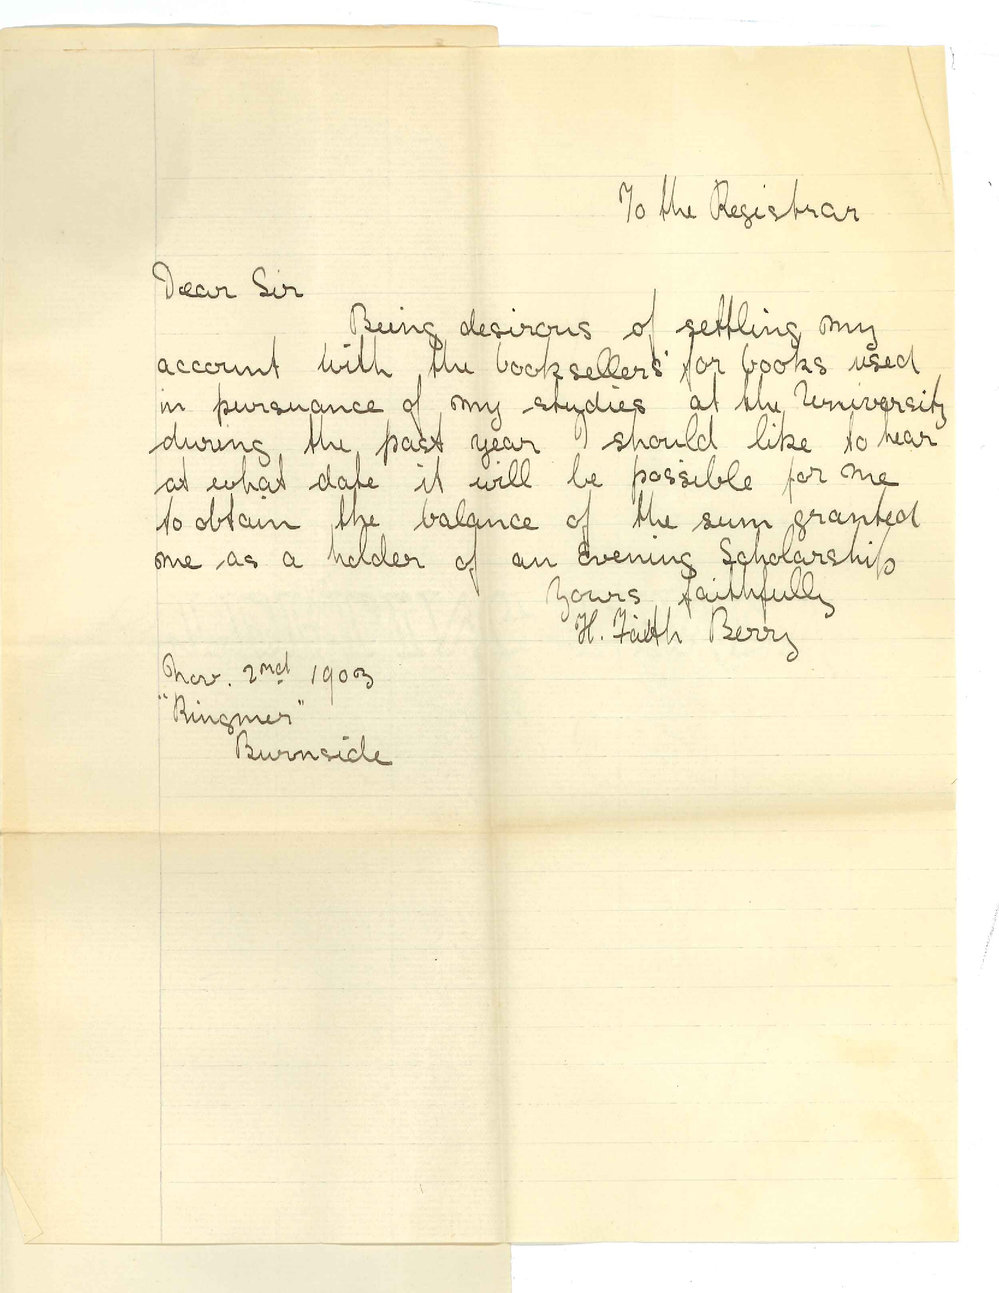 To the Registrar
Dear Sir
Being desirous of settling my
account with the booksellers' for books used
in pursuance of my studies at the University
during the past year I should like to hear
at what date it will be possible for me
to obtain the balance of the sum granted
me as a holder of an Evening Scholarship
Yours faithfully
H. Faith Berry
Nov. 2nd 1903
"Ringmer"
Burnside